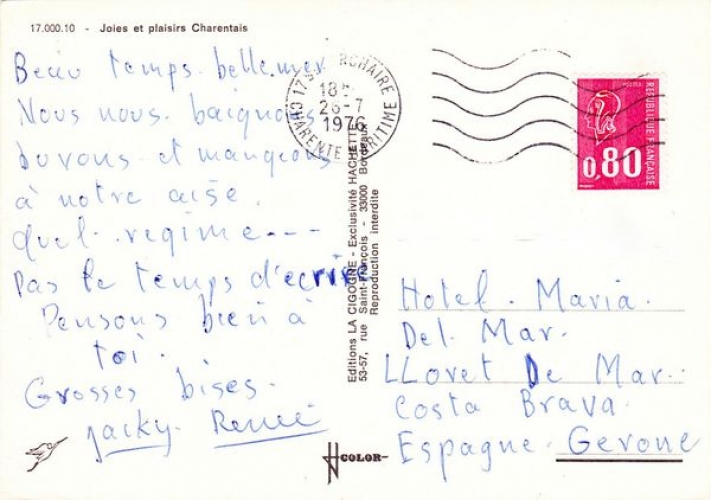 17.000.10 - Joies et plaisirs Charentais
Beau temps. belle.mer
Nous nous. baignons
buvons et mangeons
à notre aise.
quel. regime---
Pas le temps d'ecrire
Pensons bien à
toi.
Grosses bises.
Jacky. René
17
ROMAIRE
18
26-7
1976
CHARENTE MARITIME
Editions LA CIGOGNE - Exclusivité HACHETTE
53-57, rue Saint-François - 33000 Bordeaux
Reproduction interdite
COLOR
POSTES
REPUBLIQUE FRANÇAISE
0,80
Hotel. Maria.
Del. Mar.
LLoret De Mar.
Costa Brava.
Espagne. Gerone